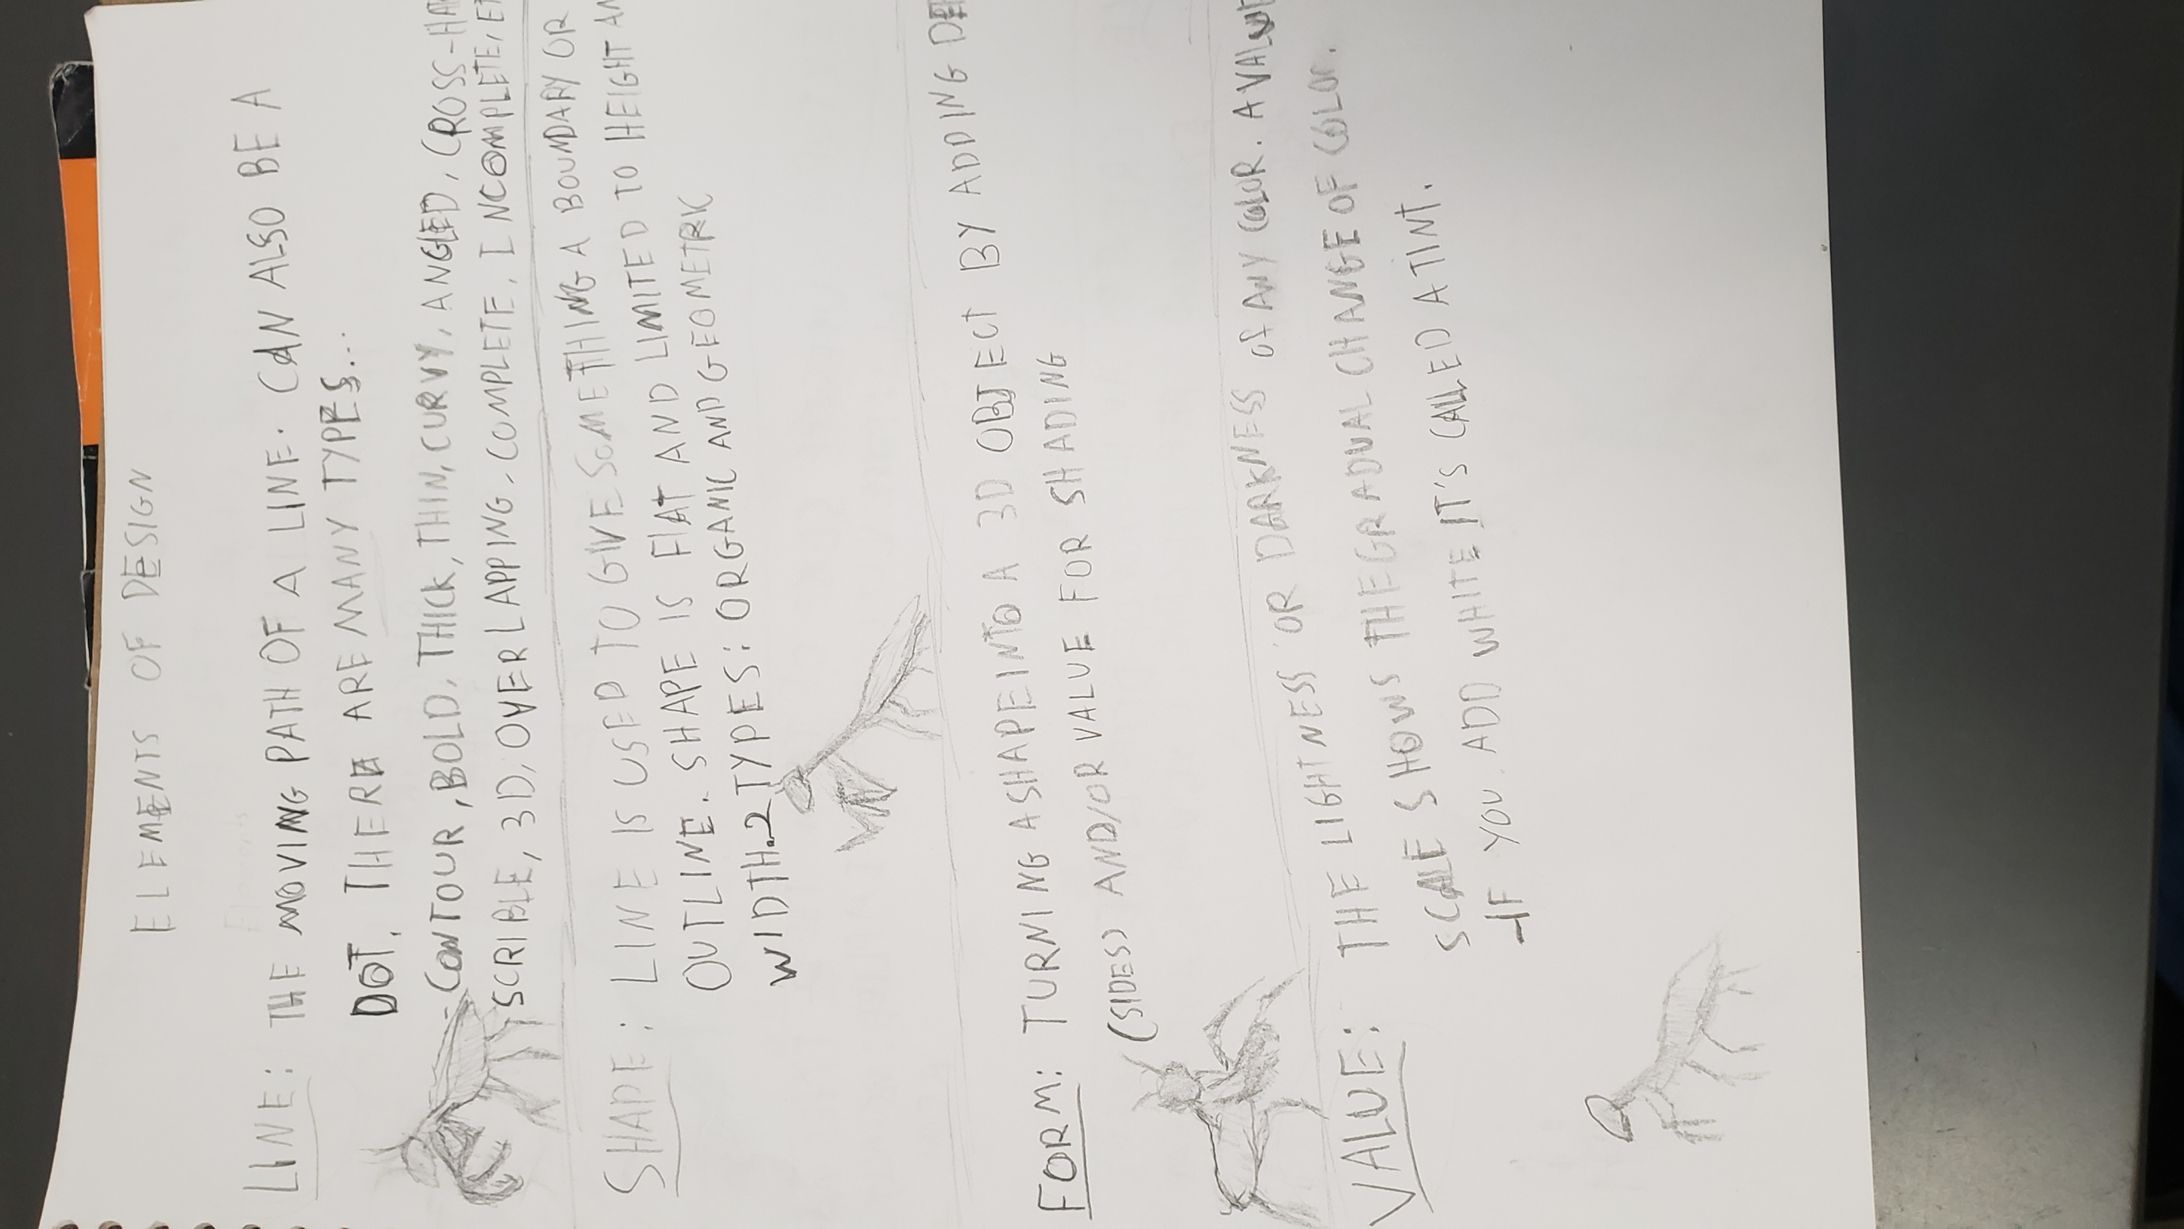 ELEMENTS OF DESIGN
LINE: THE MOVING PATH OF A LINE. CAN ALSO BE A
DOT. THERE ARE MANY TYPES...
-CONTOUR, BOLD, THICK, THIN, CURVY, ANGLED, CROSS-HA
SCRIBLE, 3D, OVERLAPPING, COMPLETE, INCOMPLETE,
SHAPE: LINE IS USED TO GIVE SOMETHING A BOUNDARY OR
OUTLINE. SHAPE IS FLAT AND LIMITED TO HEIGHT AN
WIDTH. 2 TYPES: ORGANIC AND GEOMETRIC
FORM: TURNING A SHAPE INTO A 3D OBJECT BY ADDING DE
(SIDES) AND/OR VALUE FOR SHADING
VALUE: THE LIGHTNESS OR DARKNESS OF ANY COLOR. A VALUE
SCALE SHOWS THE GRADUAL CHANGE OF COLOR.
-IF YOU ADD WHITE IT'S CALLED A TINT.